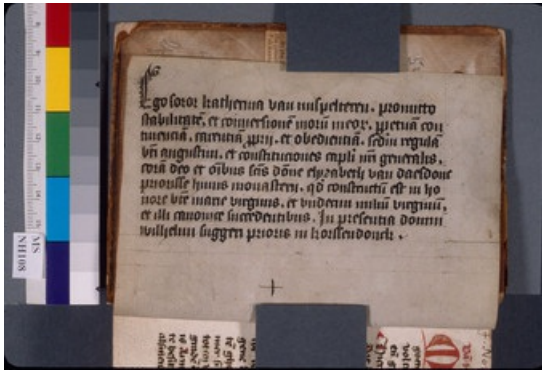 Ego soror katherina van nispelteren. promitto
stabilitatē, et conuersionē morū meor. ꝑpetuā con
tinenciā, carentiā ꝓprij. et obedienciā. scdm regulā
bti augustini. et constituciones capli nri generalis.
corā deo et oībus scīs. dōne elyzabeth van daesdonc
priorisse huius monasterij. qd constructū est in ho
nore bte marie virginis, et vndecim miliū virginū.
et illi canonice succedentibus. In presentia domini
wilhelmi suggeri prioris in korssendonck.
MS
NH108